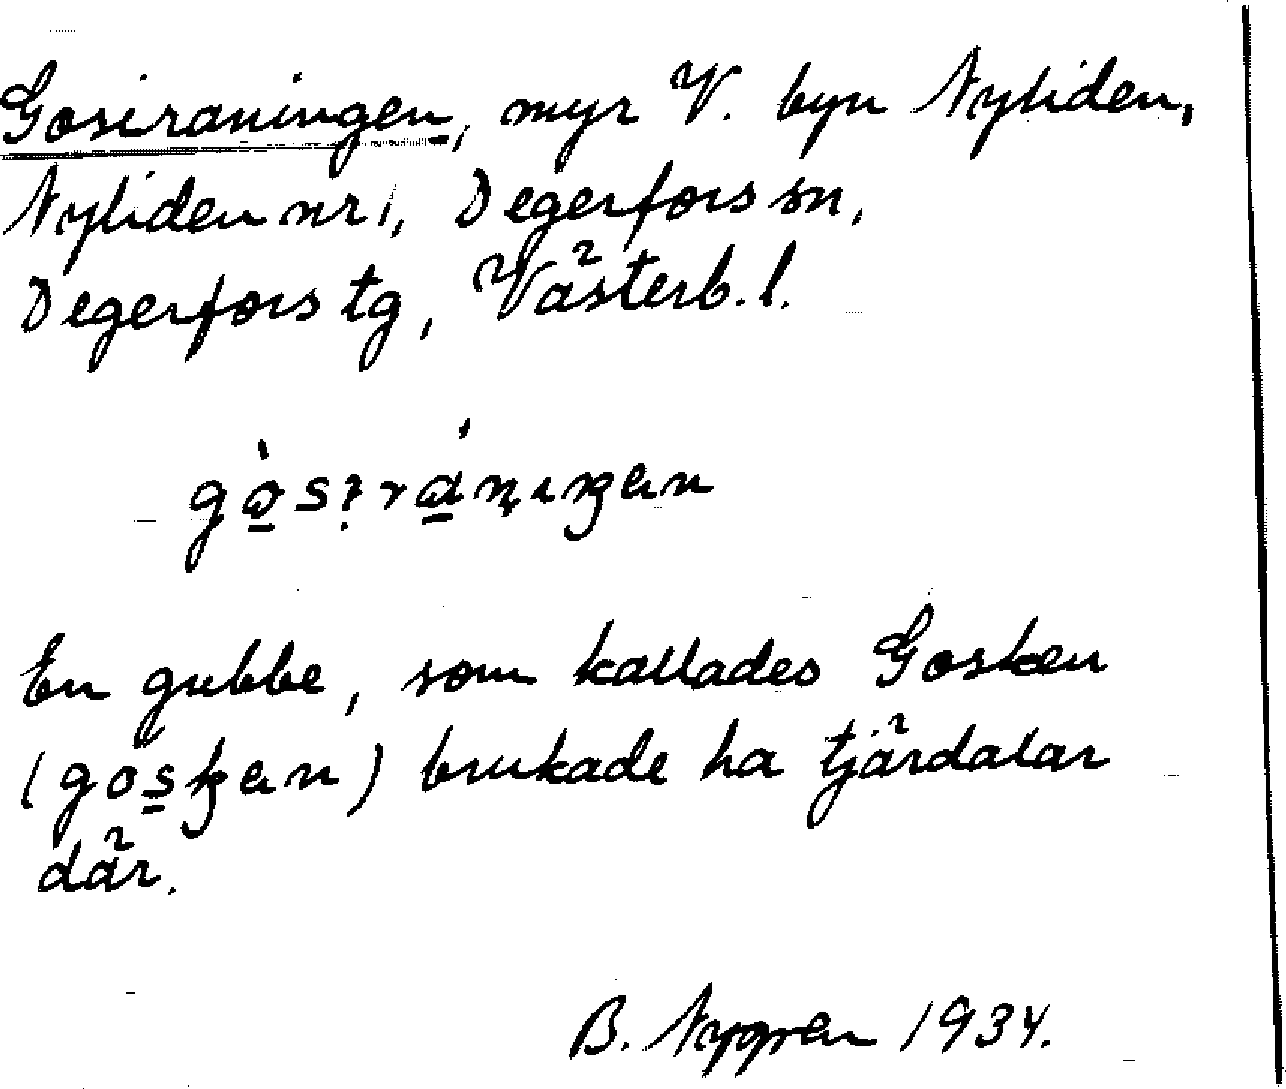 Gosiraningen, myr V. byn Nyliden,
Nyliden nr 1, Degerfors sn,
Degerfors tg, Västerb. l.
En gubbe, som kallades Gosken
(gosken) brukade ha tjärdalar
där.
B. Nygren 1934.